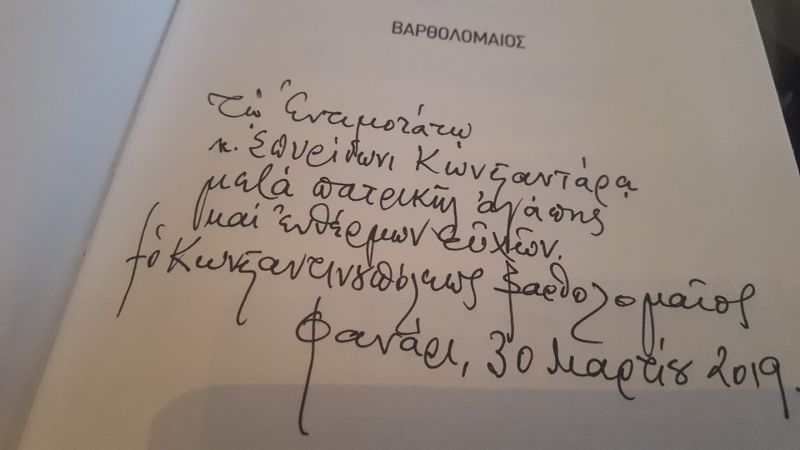 ΒΑΡΘΟΛΟΜΑΙΟΣ
Τῷ Ἐντιμοτάτῳ
κ. Σπυρίδωνι Κωνσταντάρᾳ
μετά πατρικῆς ἀγάπης
καί ἐνθέρμων εὐχῶν.
† ὁ Κωνσταντινουπόλεως Βαρθολομαῖος
Φανάρι, 30 Μαρτίου 2019.